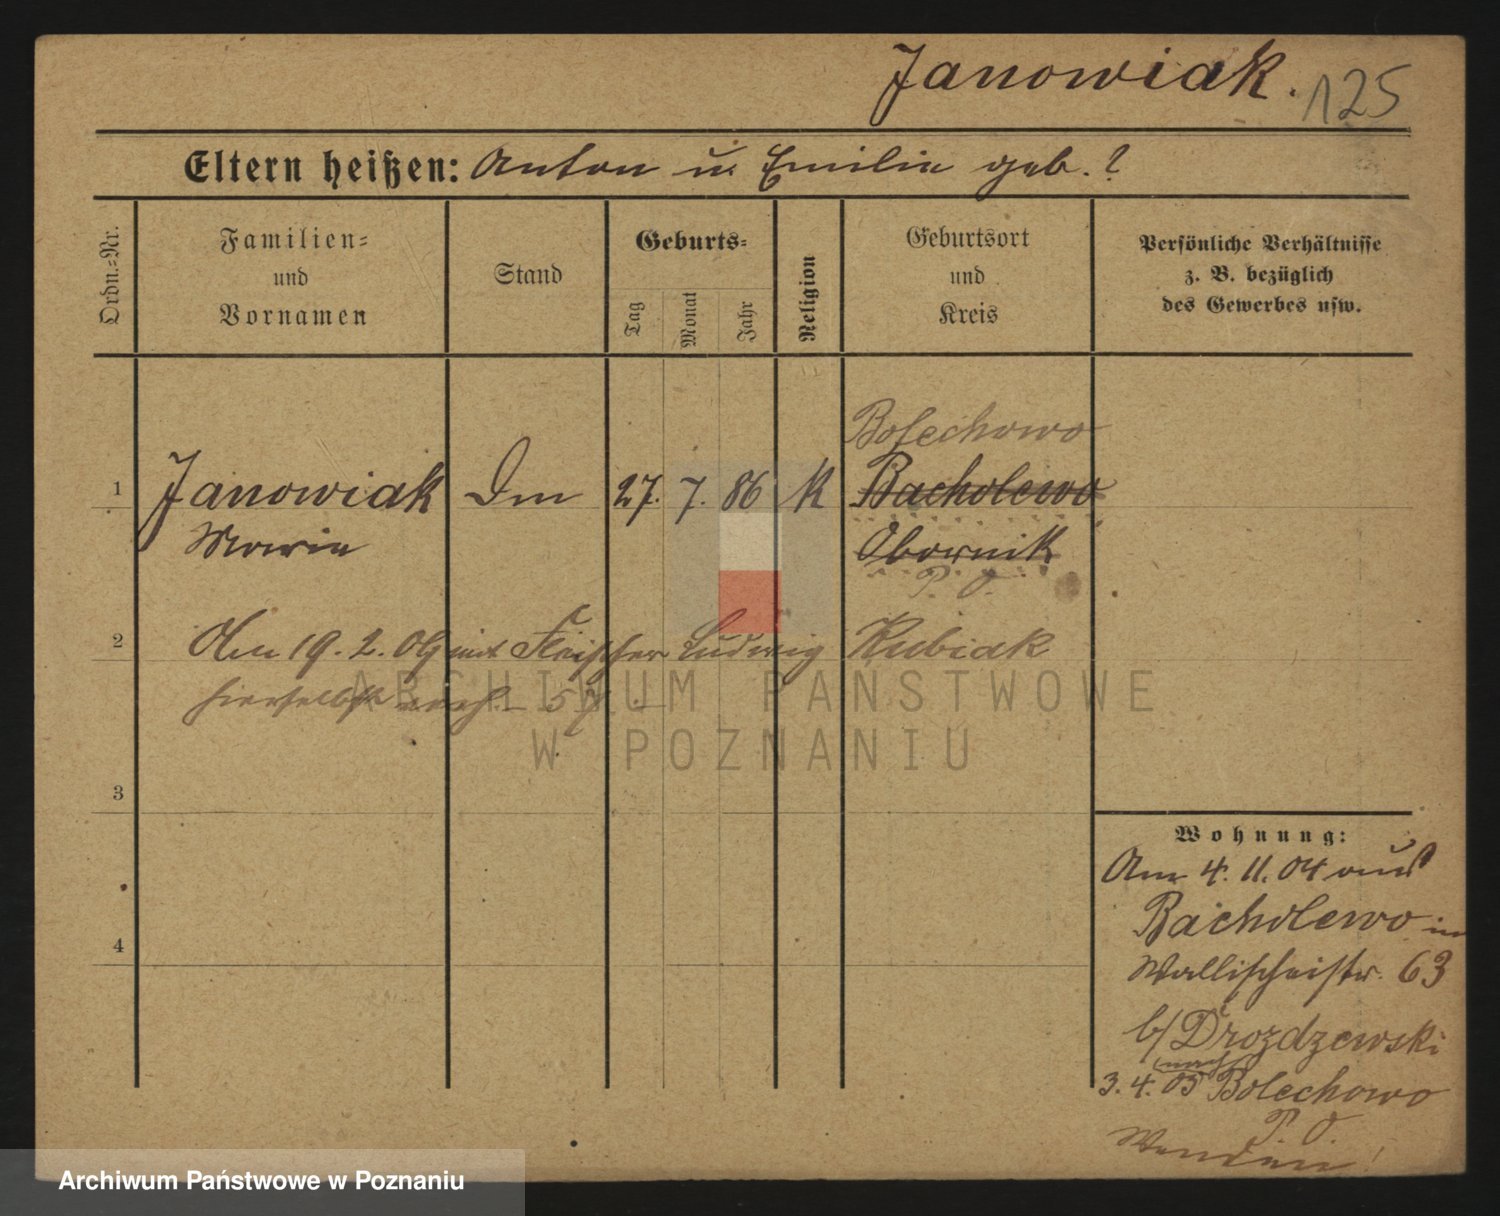 Janowiak. 125
Eltern heißen: Anton u. Emilie geb. ?
Ordn.=Nr.
Familien=
und
Vornamen
Stand
Geburts=
Tag
Monat
Jahr
Religion
Geburtsort
und
Kreis
Persönliche Verhältnisse
z. B. bezüglich
des Gewerbes usw.
Bolechowo
1 Janowiak 27. 7. 86 K Bacholewo
Marie Obornik
P. O.
2 Am 19. 2. 09 mit Fleischer Ludwig Kubiak
hierselbst verh.
3
4
Wohnung:
Am 4. 11. 04 aus
Bacholewo in
Wallischeistr. 63
b/ Drozdzewski
nach
3. 4. 05 Bolechowo
P. O.
ARCHIWUM PAŃSTWOWE
W POZNANIU
Archiwum Państwowe w Poznaniu